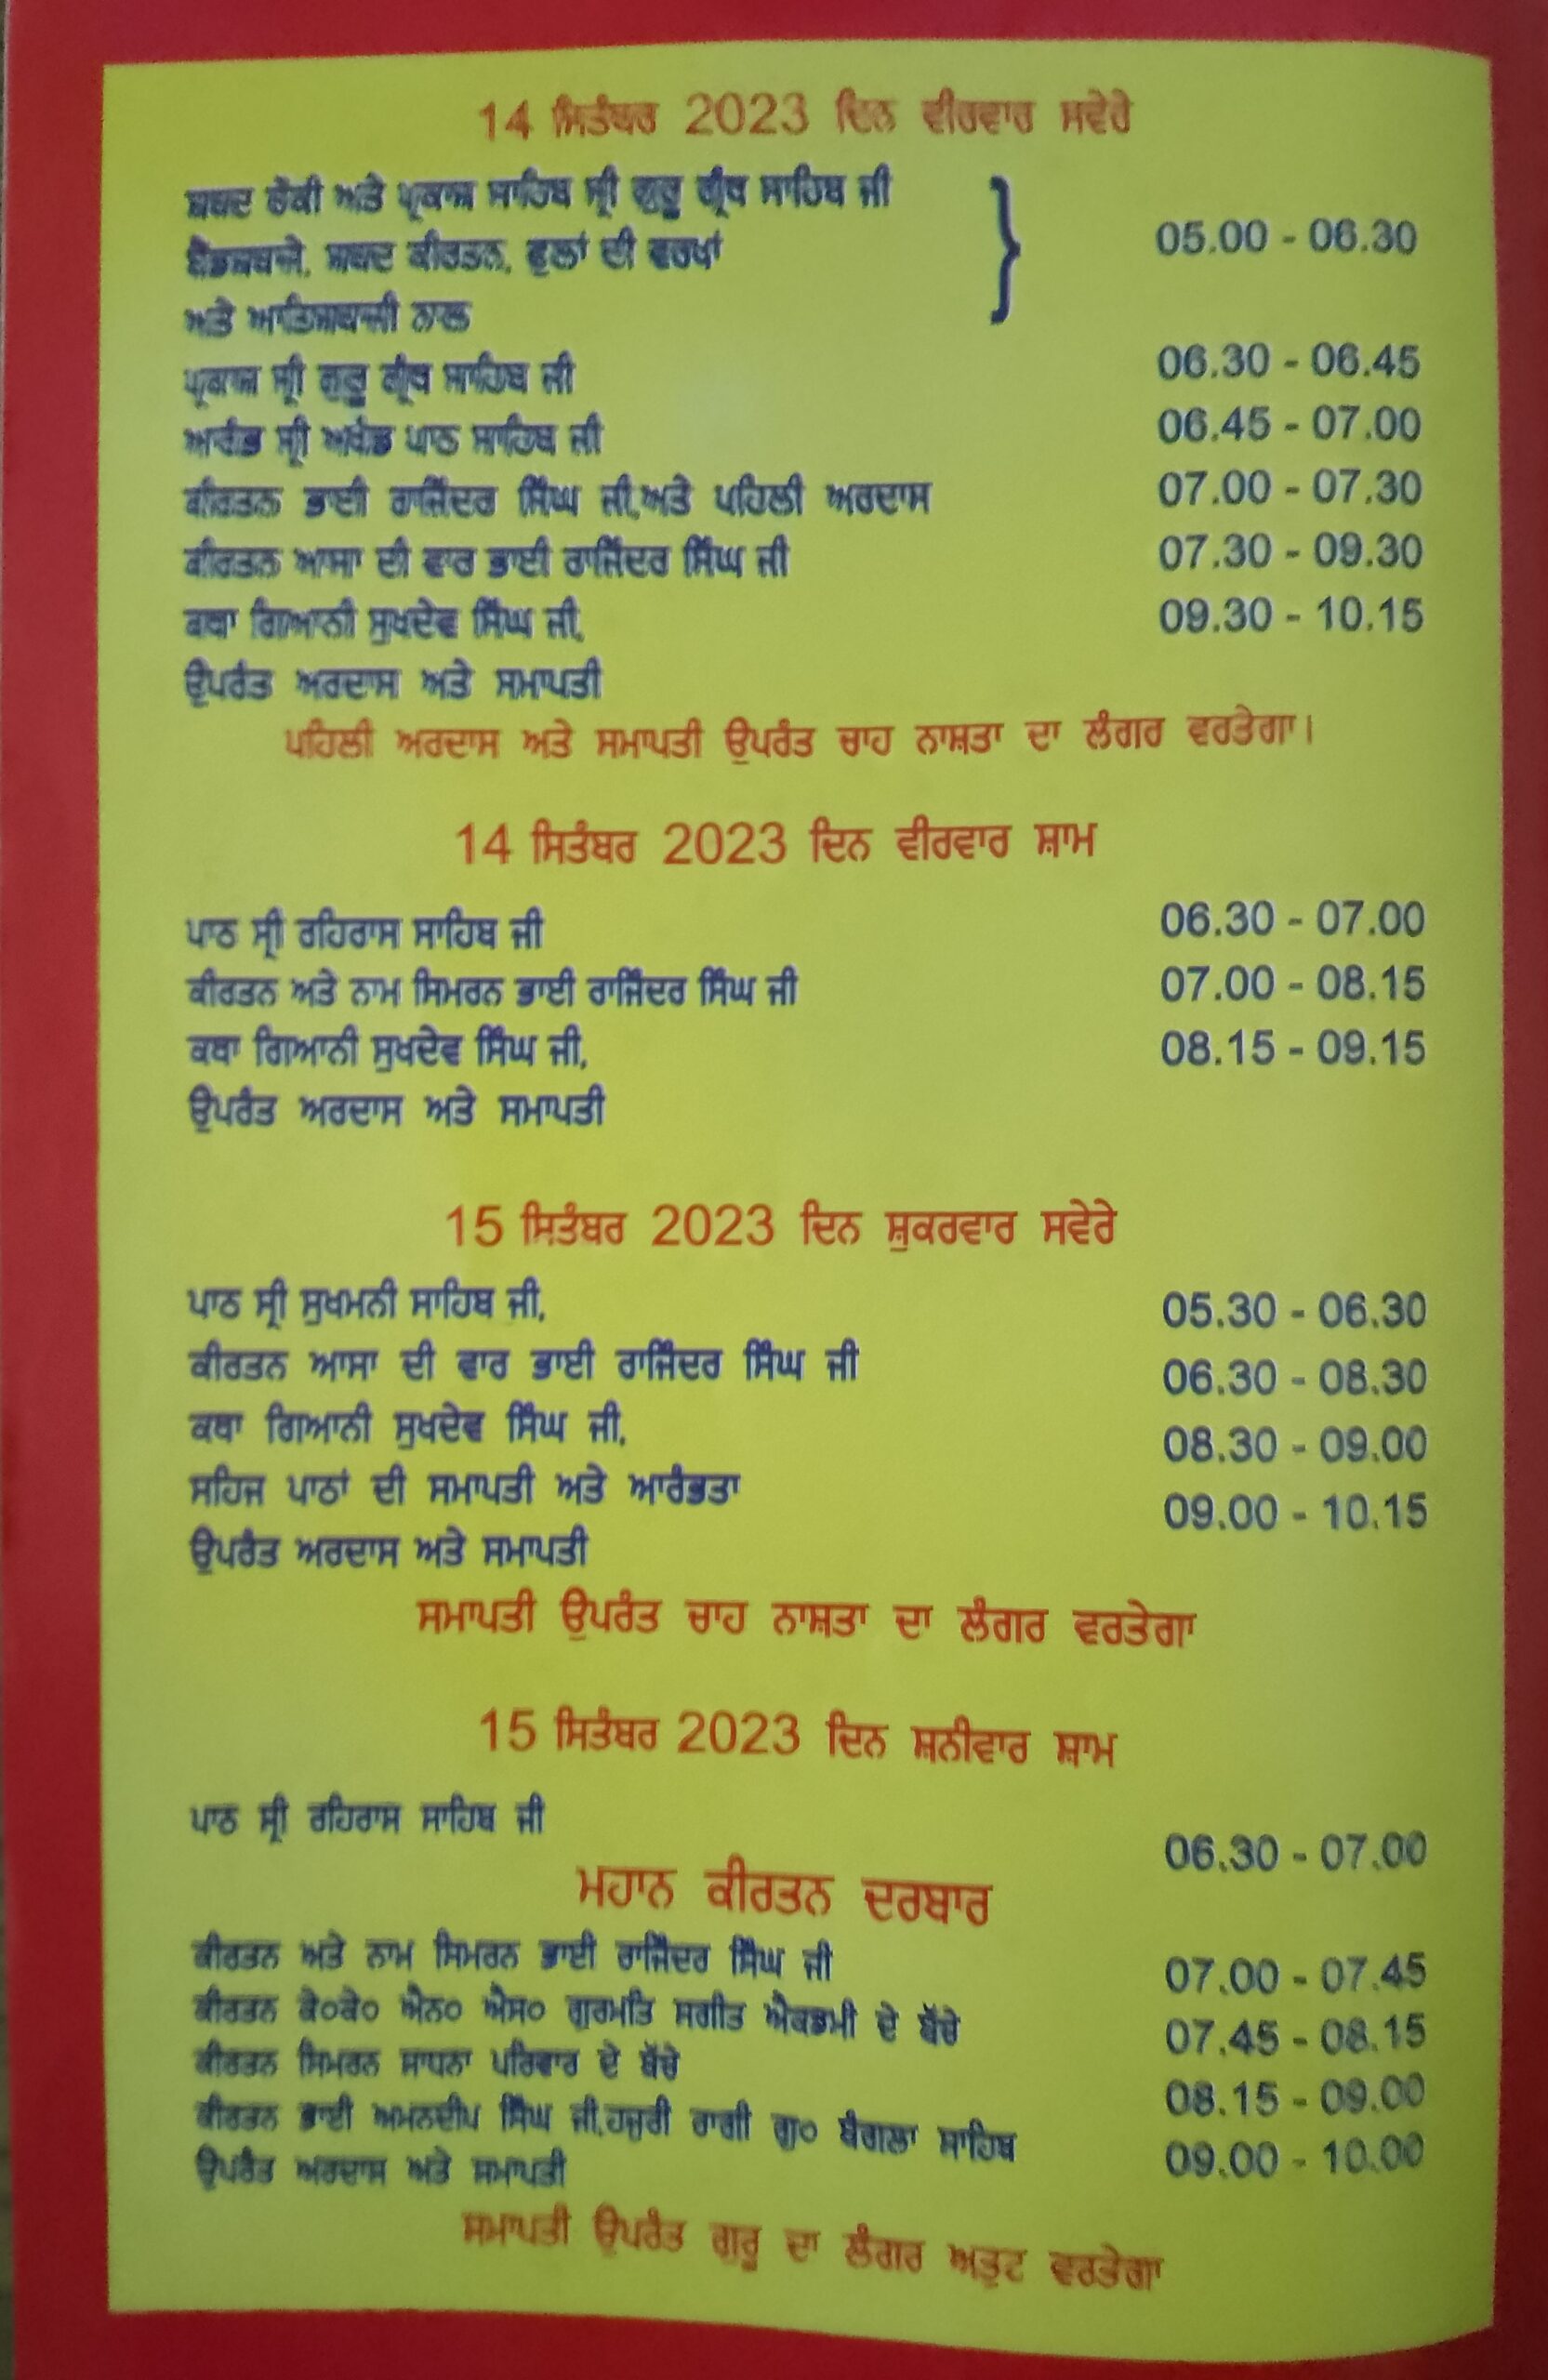 14 ਸਿਤੰਬਰ 2023 ਦਿਨ ਵੀਰਵਾਰ ਸਵੇਰੇ
ਸ਼ਬਦ ਚੌਕੀ ਅਤੇ ਪ੍ਰਕਾਸ਼ ਸਾਹਿਬ ਸ੍ਰੀ ਗੁਰੂ ਗ੍ਰੰਥ ਸਾਹਿਬ ਜੀ
ਬੈਂਡਬਾਜੇ, ਸ਼ਬਦ ਕੀਰਤਨ, ਫੁਲਾਂ ਦੀ ਵਰਖਾਂ 05.00 - 06.30
ਅਤੇ ਆਤਿਸ਼ਬਾਜੀ ਨਾਲ
ਪ੍ਰਕਾਸ਼ ਸ੍ਰੀ ਗੁਰੂ ਗ੍ਰੰਥ ਸਾਹਿਬ ਜੀ 06.30 - 06.45
ਆਰੰਭ ਸ੍ਰੀ ਅਖੰਡ ਪਾਠ ਸਾਹਿਬ ਜੀ 06.45 - 07.00
ਕੀਰਤਨ ਭਾਈ ਰਾਜਿੰਦਰ ਸਿੰਘ ਜੀ,ਅਤੇ ਪਹਿਲੀ ਅਰਦਾਸ 07.00 - 07.30
ਕੀਰਤਨ ਆਸਾ ਦੀ ਵਾਰ ਭਾਈ ਰਾਜਿੰਦਰ ਸਿੰਘ ਜੀ 07.30 - 09.30
ਕਥਾ ਗਿਆਨੀ ਸੁਖਦੇਵ ਸਿੰਘ ਜੀ, 09.30 - 10.15
ਉਪਰੰਤ ਅਰਦਾਸ ਅਤੇ ਸਮਾਪਤੀ
ਪਹਿਲੀ ਅਰਦਾਸ ਅਤੇ ਸਮਾਪਤੀ ਉਪਰੰਤ ਚਾਹ ਨਾਸ਼ਤਾ ਦਾ ਲੰਗਰ ਵਰਤੇਗਾ।
14 ਸਿਤੰਬਰ 2023 ਦਿਨ ਵੀਰਵਾਰ ਸ਼ਾਮ
ਪਾਠ ਸ੍ਰੀ ਰਹਿਰਾਸ ਸਾਹਿਬ ਜੀ 06.30 - 07.00
ਕੀਰਤਨ ਅਤੇ ਨਾਮ ਸਿਮਰਨ ਭਾਈ ਰਾਜਿੰਦਰ ਸਿੰਘ ਜੀ 07.00 - 08.15
ਕਥਾ ਗਿਆਨੀ ਸੁਖਦੇਵ ਸਿੰਘ ਜੀ, 08.15 - 09.15
ਉਪਰੰਤ ਅਰਦਾਸ ਅਤੇ ਸਮਾਪਤੀ
15 ਸਿਤੰਬਰ 2023 ਦਿਨ ਸ਼ੁਕਰਵਾਰ ਸਵੇਰੇ
ਪਾਠ ਸ੍ਰੀ ਸੁਖਮਨੀ ਸਾਹਿਬ ਜੀ, 05.30 - 06.30
ਕੀਰਤਨ ਆਸਾ ਦੀ ਵਾਰ ਭਾਈ ਰਾਜਿੰਦਰ ਸਿੰਘ ਜੀ 06.30 - 08.30
ਕਥਾ ਗਿਆਨੀ ਸੁਖਦੇਵ ਸਿੰਘ ਜੀ, 08.30 - 09.00
ਸਹਿਜ ਪਾਠਾਂ ਦੀ ਸਮਾਪਤੀ ਅਤੇ ਆਰੰਭਤਾ 09.00 - 10.15
ਉਪਰੰਤ ਅਰਦਾਸ ਅਤੇ ਸਮਾਪਤੀ
ਸਮਾਪਤੀ ਉਪਰੰਤ ਚਾਹ ਨਾਸ਼ਤਾ ਦਾ ਲੰਗਰ ਵਰਤੇਗਾ
15 ਸਿਤੰਬਰ 2023 ਦਿਨ ਸ਼ਨੀਵਾਰ ਸ਼ਾਮ
ਪਾਠ ਸ੍ਰੀ ਰਹਿਰਾਸ ਸਾਹਿਬ ਜੀ 06.30 - 07.00
ਮਹਾਨ ਕੀਰਤਨ ਦਰਬਾਰ
ਕੀਰਤਨ ਅਤੇ ਨਾਮ ਸਿਮਰਨ ਭਾਈ ਰਾਜਿੰਦਰ ਸਿੰਘ ਜੀ 07.00 - 07.45
ਕੀਰਤਨ ਕੇ੦ਕੇ੦ ਐਨ੦ ਐਸ੦ ਗੁਰਮਤਿ ਸਗੀਤ ਐਕਡਮੀ ਦੇ ਬੱਚੇ 07.45 - 08.15
ਕੀਰਤਨ ਸਿਮਰਨ ਸਾਧਨਾ ਪਰਿਵਾਰ ਦੇ ਬੱਚੇ 08.15 - 09.00
ਕੀਰਤਨ ਭਾਈ ਅਮਨਦੀਪ ਸਿੰਘ ਜੀ,ਹਜੁਰੀ ਰਾਗੀ ਗੁ੦ ਬੰਗਲਾ ਸਾਹਿਬ 09.00 - 10.00
ਉਪਰੰਤ ਅਰਦਾਸ ਅਤੇ ਸਮਾਪਤੀ
ਸਮਾਪਤੀ ਉਪਰੰਤ ਗੁਰੂ ਦਾ ਲੰਗਰ ਅਤੁਟ ਵਰਤੇਗਾ